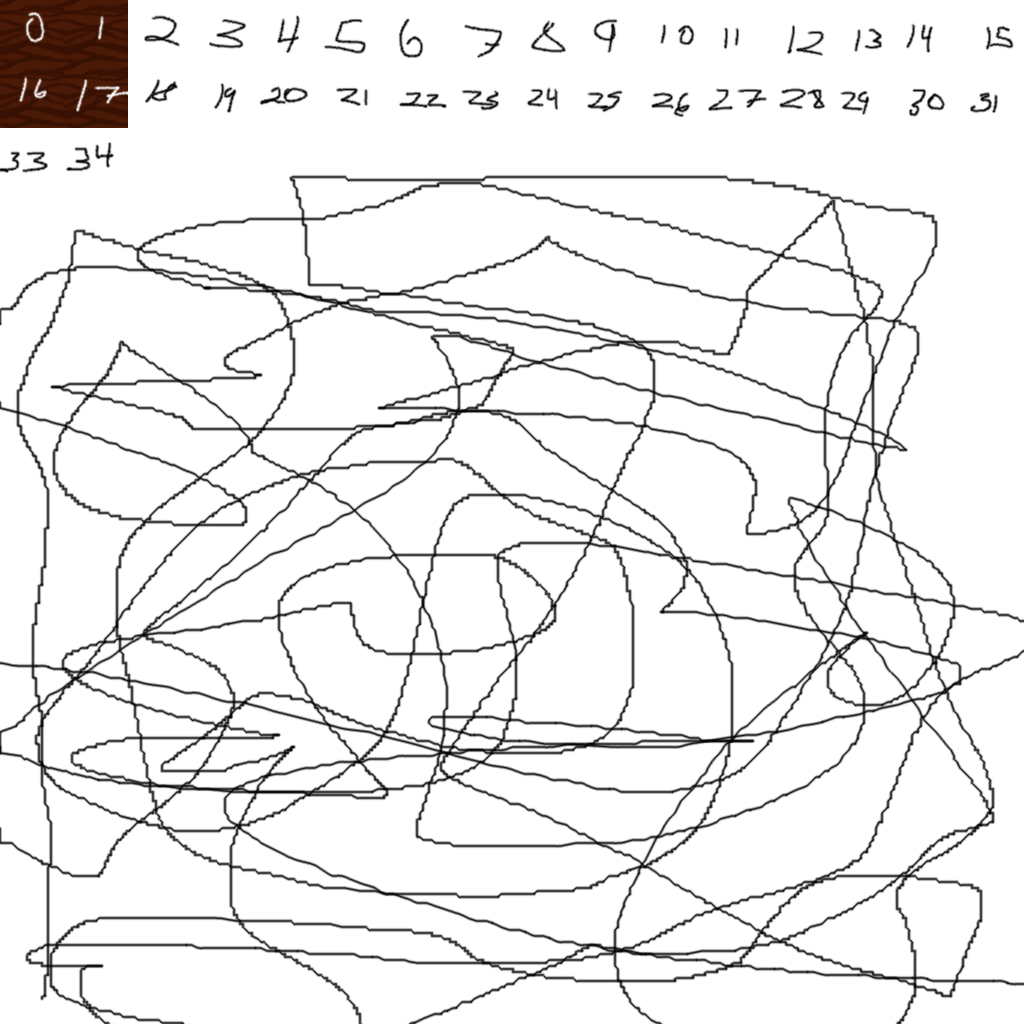 0 1 2 3 4 5 6 7 8 9 10 11 12 13 14 15
16 17 18 19 20 21 22 23 24 25 26 27 28 29 30 31
33 34